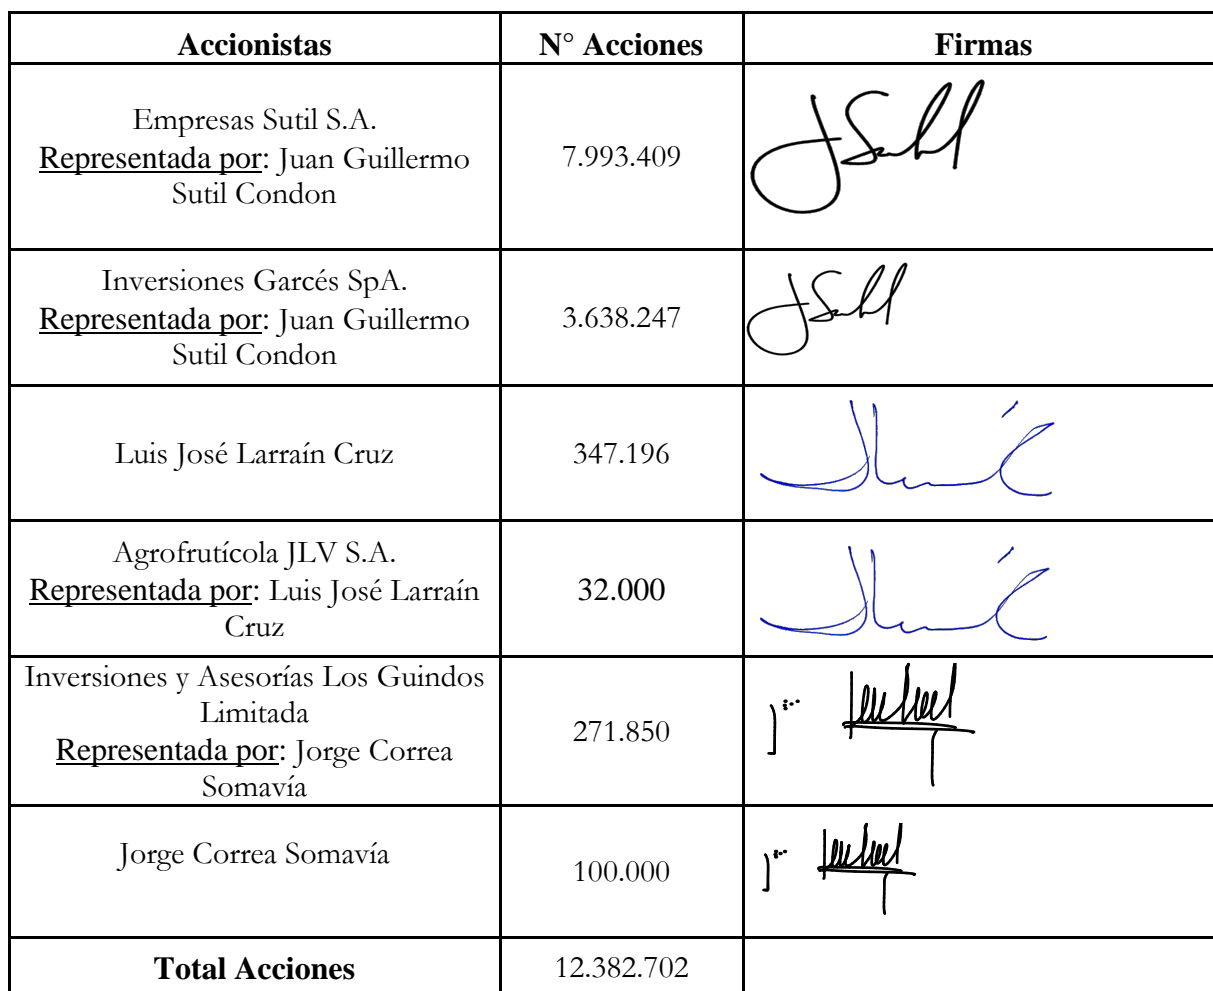 Accionistas
N° Acciones
Firmas
Empresas Sutil S.A.
Representada por: Juan Guillermo
Sutil Condon
7.993.409
Inversiones Garcés SpA.
Representada por: Juan Guillermo
Sutil Condon
3.638.247
Luis José Larraín Cruz
347.196
Agrofrutícola JLV S.A.
Representada por: Luis José Larraín
Cruz
32.000
Inversiones y Asesorías Los Guindos
Limitada
Representada por: Jorge Correa
Somavía
271.850
Jorge Correa Somavía
100.000
Total Acciones
12.382.702